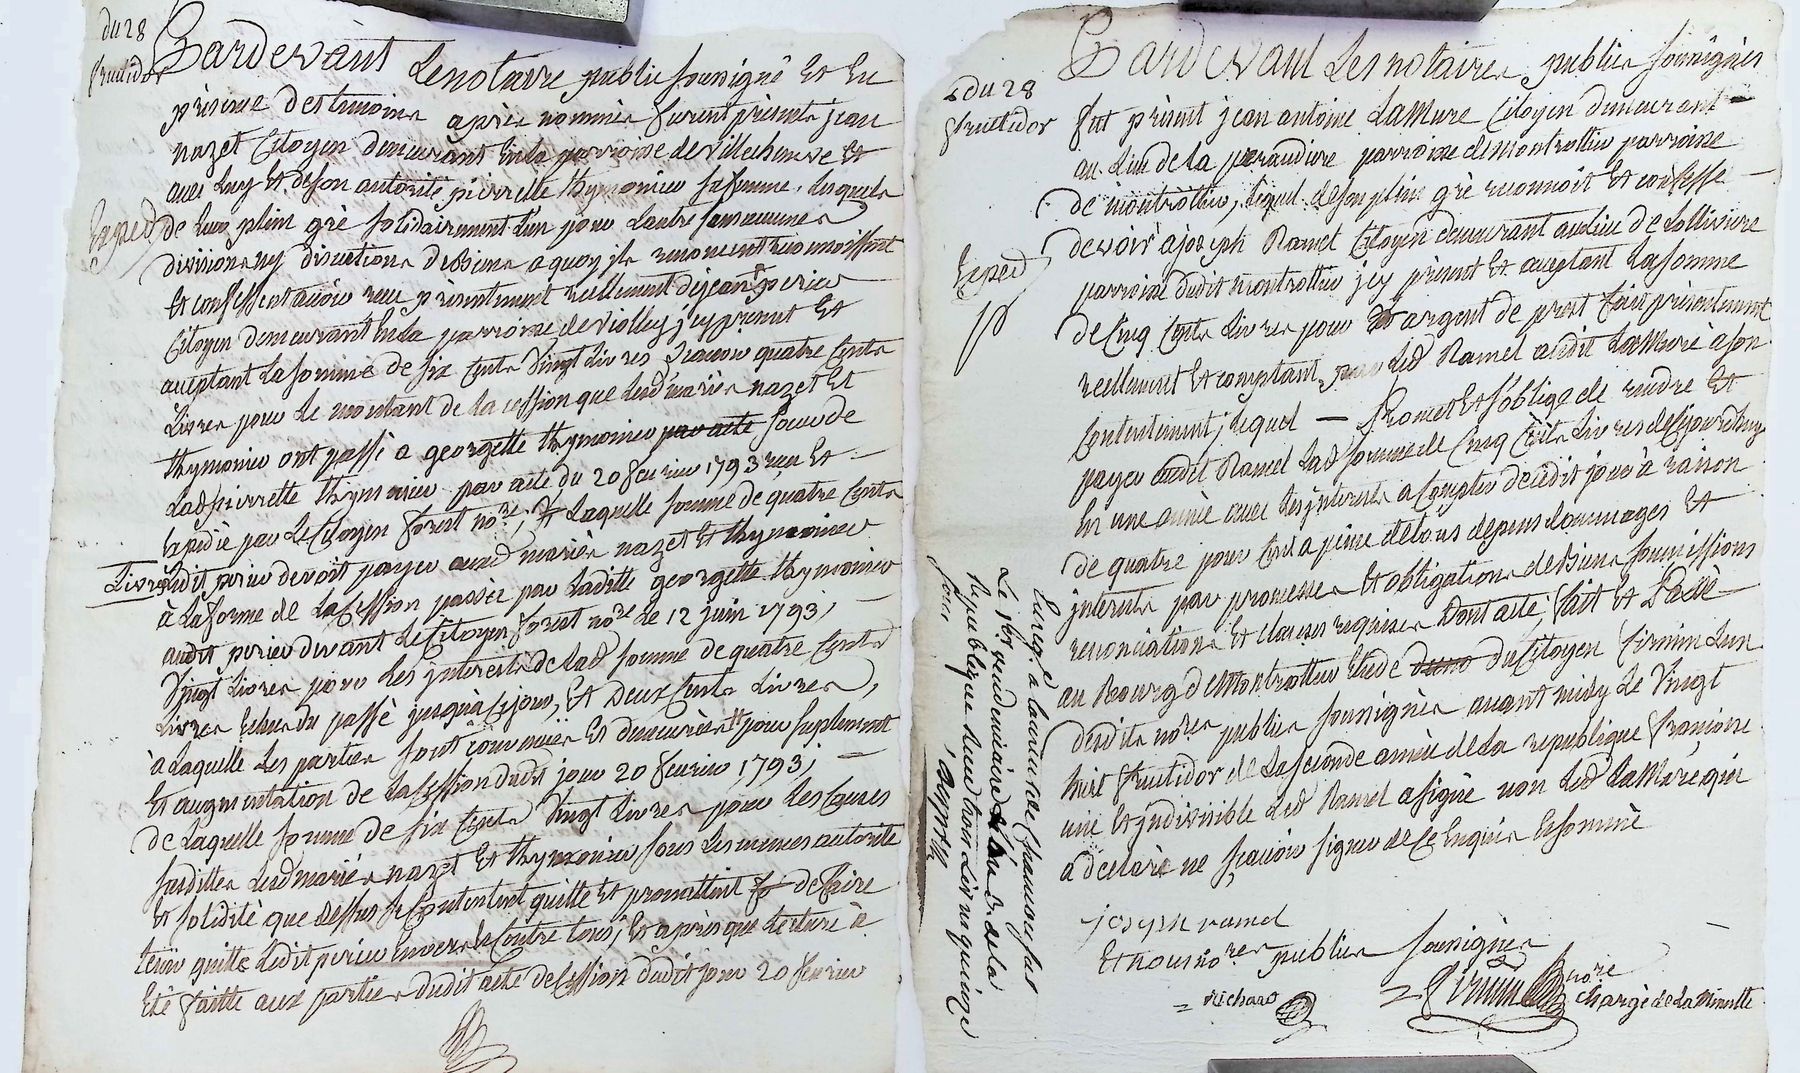 du 28
fructidor
Pardevant Le notaire public soussigné Et En
présence des temoins après nommés furent présents jean
nazet Citoyen demeurant En la parroisse de Villecheneve Et
avec luy Et de son autorité pierrette thymonier sa femme, lesquels
Exped
de leur plein gré solidairement l'un pour l'autre sans aucunes
divisions ny discutions de biens a quoy ils renoncent reconnoissent
Et confessent avoir reçu présentement reellement de jean perier
Citoyen demeurant En la parroisse de Violley jcy présent Et
acceptant la somme de six Cents Vingt Livres sçavoir quatre Cents
Livres pour le montant de la cession que lesd mariés nazet Et
thymonier ont passé a georgette thymonier par acte soeur de
Lad pierrette thymonier par acte du 20 fevrier 1793 reçu Et
Expedié par Le Citoyen forest nore; Laquelle somme de quatre Cents
Livres
ledit perier devoit payer auxd mariés nazet Et thymonier
à La forme de La Cession passée par Laditte georgette thymonier
audit perier devant Le Citoyen forest nore Le 12 juin 1793;
Vingt Livres pour les jnterests de lad somme de quatre Cents
Livres Echus du passé jusqu'à Ce jour, Et deux Cents Livres,
à Laquelle Les parties sont convenües Et demeurées pour suplement
Et augmentation de la Cession dudit jour 20 fevrier 1793;
de Laquelle somme de six Cents Vingt Livres pour les Causes
susdittes Lesd mariés nazet Et thymonier sous Les mêmes autorité
Et solidité que dessus se Contentent quitte Et promettent de faire
tenir quitte Ledit perier Envers Et Contre tous; Et après que lecture à
Eté faitte aux parties dudit acte de Cession dudit jour 20 fevrier
du 28
fructidor
Pardevant Les notaires publics soussignés
fut présent jean antoine Lamure Citoyen demeurant
au Lieu de la peraudiere parroisse de Montrottier parroisse
de montrottier, lequel de son plein gré reconnoit Et confesse
devoir a joseph Ramel Citoyen demeurant au lieu de Lolliviere
Exped
parroisse dudit montrottier jcy présent Et acceptant La somme
de Cinq Cents Livres pour argent de prest fait présentement
reellement Et comptant par Led Ramel audit Lamure à son
Contentement; lequel promet Et s'oblige de rendre Et
payer audit Ramel Lad somme de Cinq Cents Livres de Ce jourdhuy
En une année avec les jnterests a Compter de cedit jour à raison
de quatre pour Cent a peine de tous depens dommages Et
jnterests par promesses Et obligations de biens soumissions
renonciations Et clauses requises Dont acte; fait Et Passé
au Bourg de Montrottier Etude du Citoyen firmin L'un
desdits nores publics soussignés avant midy Le Vingt
huit fructidor de La seconde année de La republique françoise
une Et jndivisible Led Ramel a signé non Led Lamure qui
a declaré ne sçavoir signer de Ce Enquis Et sommé
joseph ramel
Et nous nores publics soussignés
Richard
firmin nore
chargé de La Minutte
Enregé a bureau de chamousset
Le 1er vendemiaire L'an 3e de la
republique Reçu trois Livres quinze
sous.